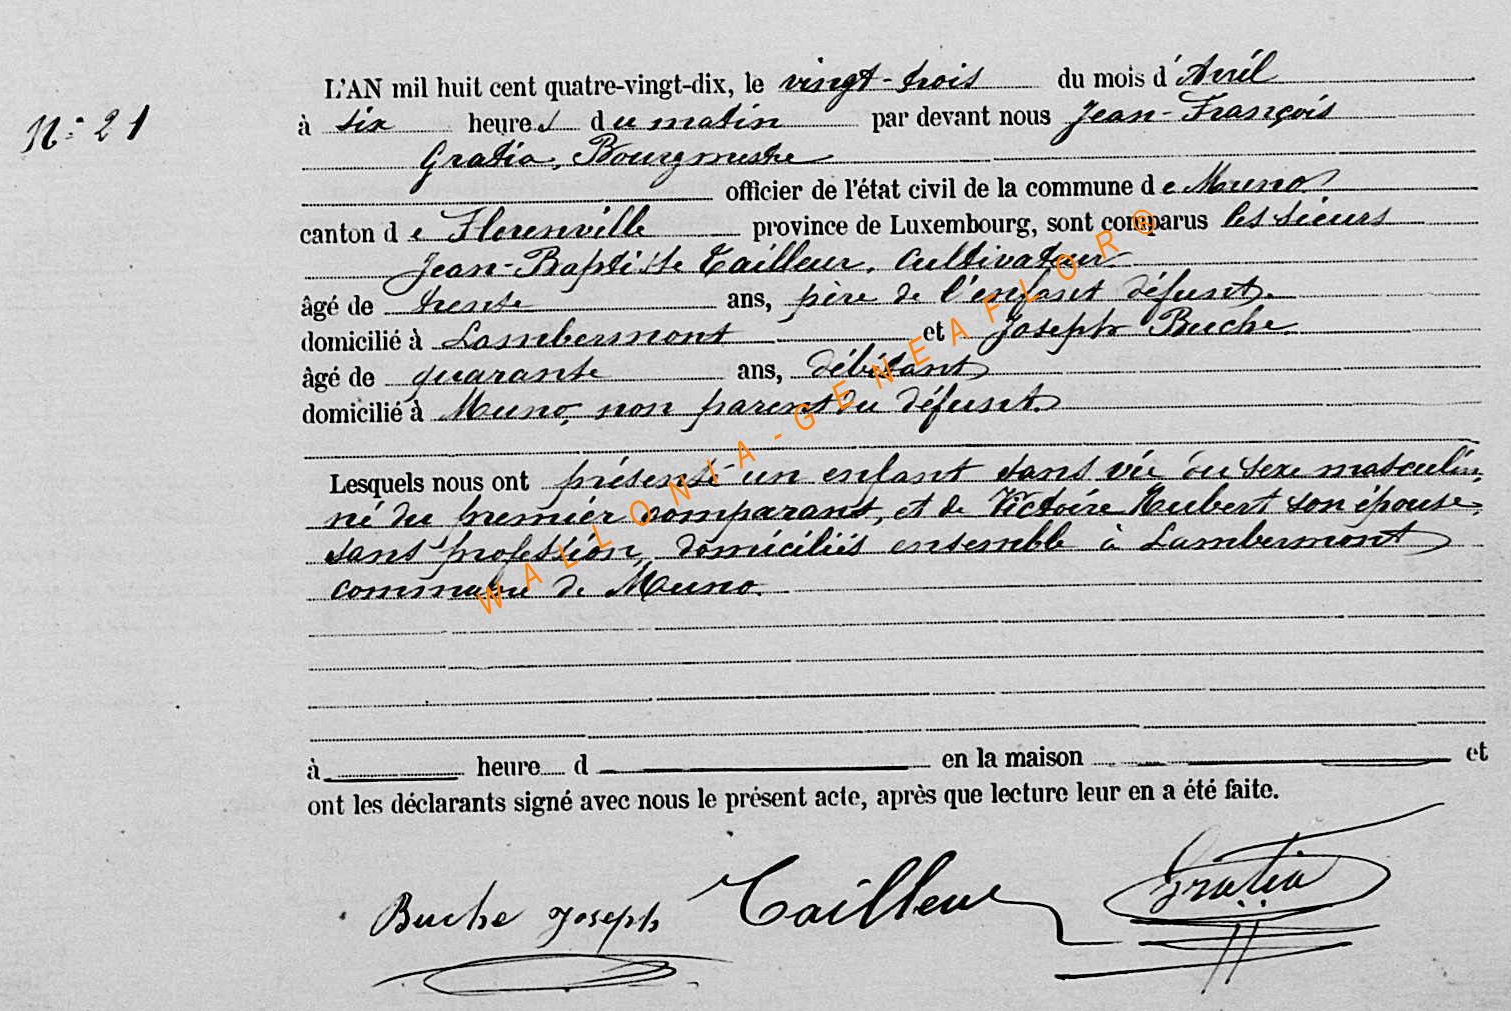 N° 21
L'AN mil huit cent quatre-vingt-dix, le vingt-trois du mois d'Avril
à six heures du matin par devant nous Jean-François
Gratia, Bourgmestre
officier de l'état civil de la commune de Muno
canton de Florenville province de Luxembourg, sont comparus les sieurs
Jean-Baptiste Tailleur, Cultivateur
âgé de trente ans, père de l'enfant défunt.
domicilié à Lambermont et Joseph Buche
âgé de quarante ans, débitant
domicilié à Muno, non parent du défunt.
Lesquels nous ont présenté un enfant sans vie du sexe masculin,
né du premier comparant, et de Victoire Hubert son épouse,
sans profession, domiciliés ensemble à Lambermont
commune de Muno.
à heure d en la maison et
ont les déclarants signé avec nous le présent acte, après que lecture leur en a été faite.
Buche Joseph Tailleur Gratia
WALLONIA-GENEAFLOR®